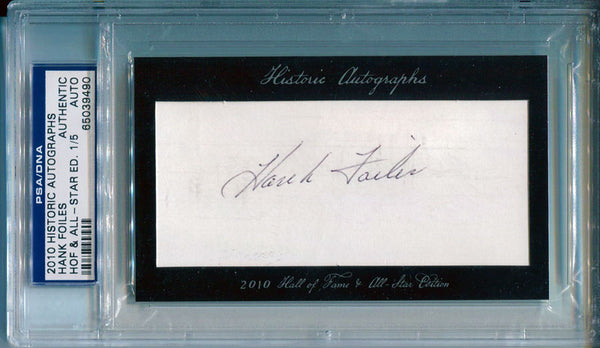 PSA/DNA
2010 HISTORIC AUTOGRAPHS
HANK FOILES AUTHENTIC
HOF & ALL-STAR ED. 1/5 AUTO
65039490
Historic Autographs
Hank Foiles
2010 Hall of Fame & All-Star Edition